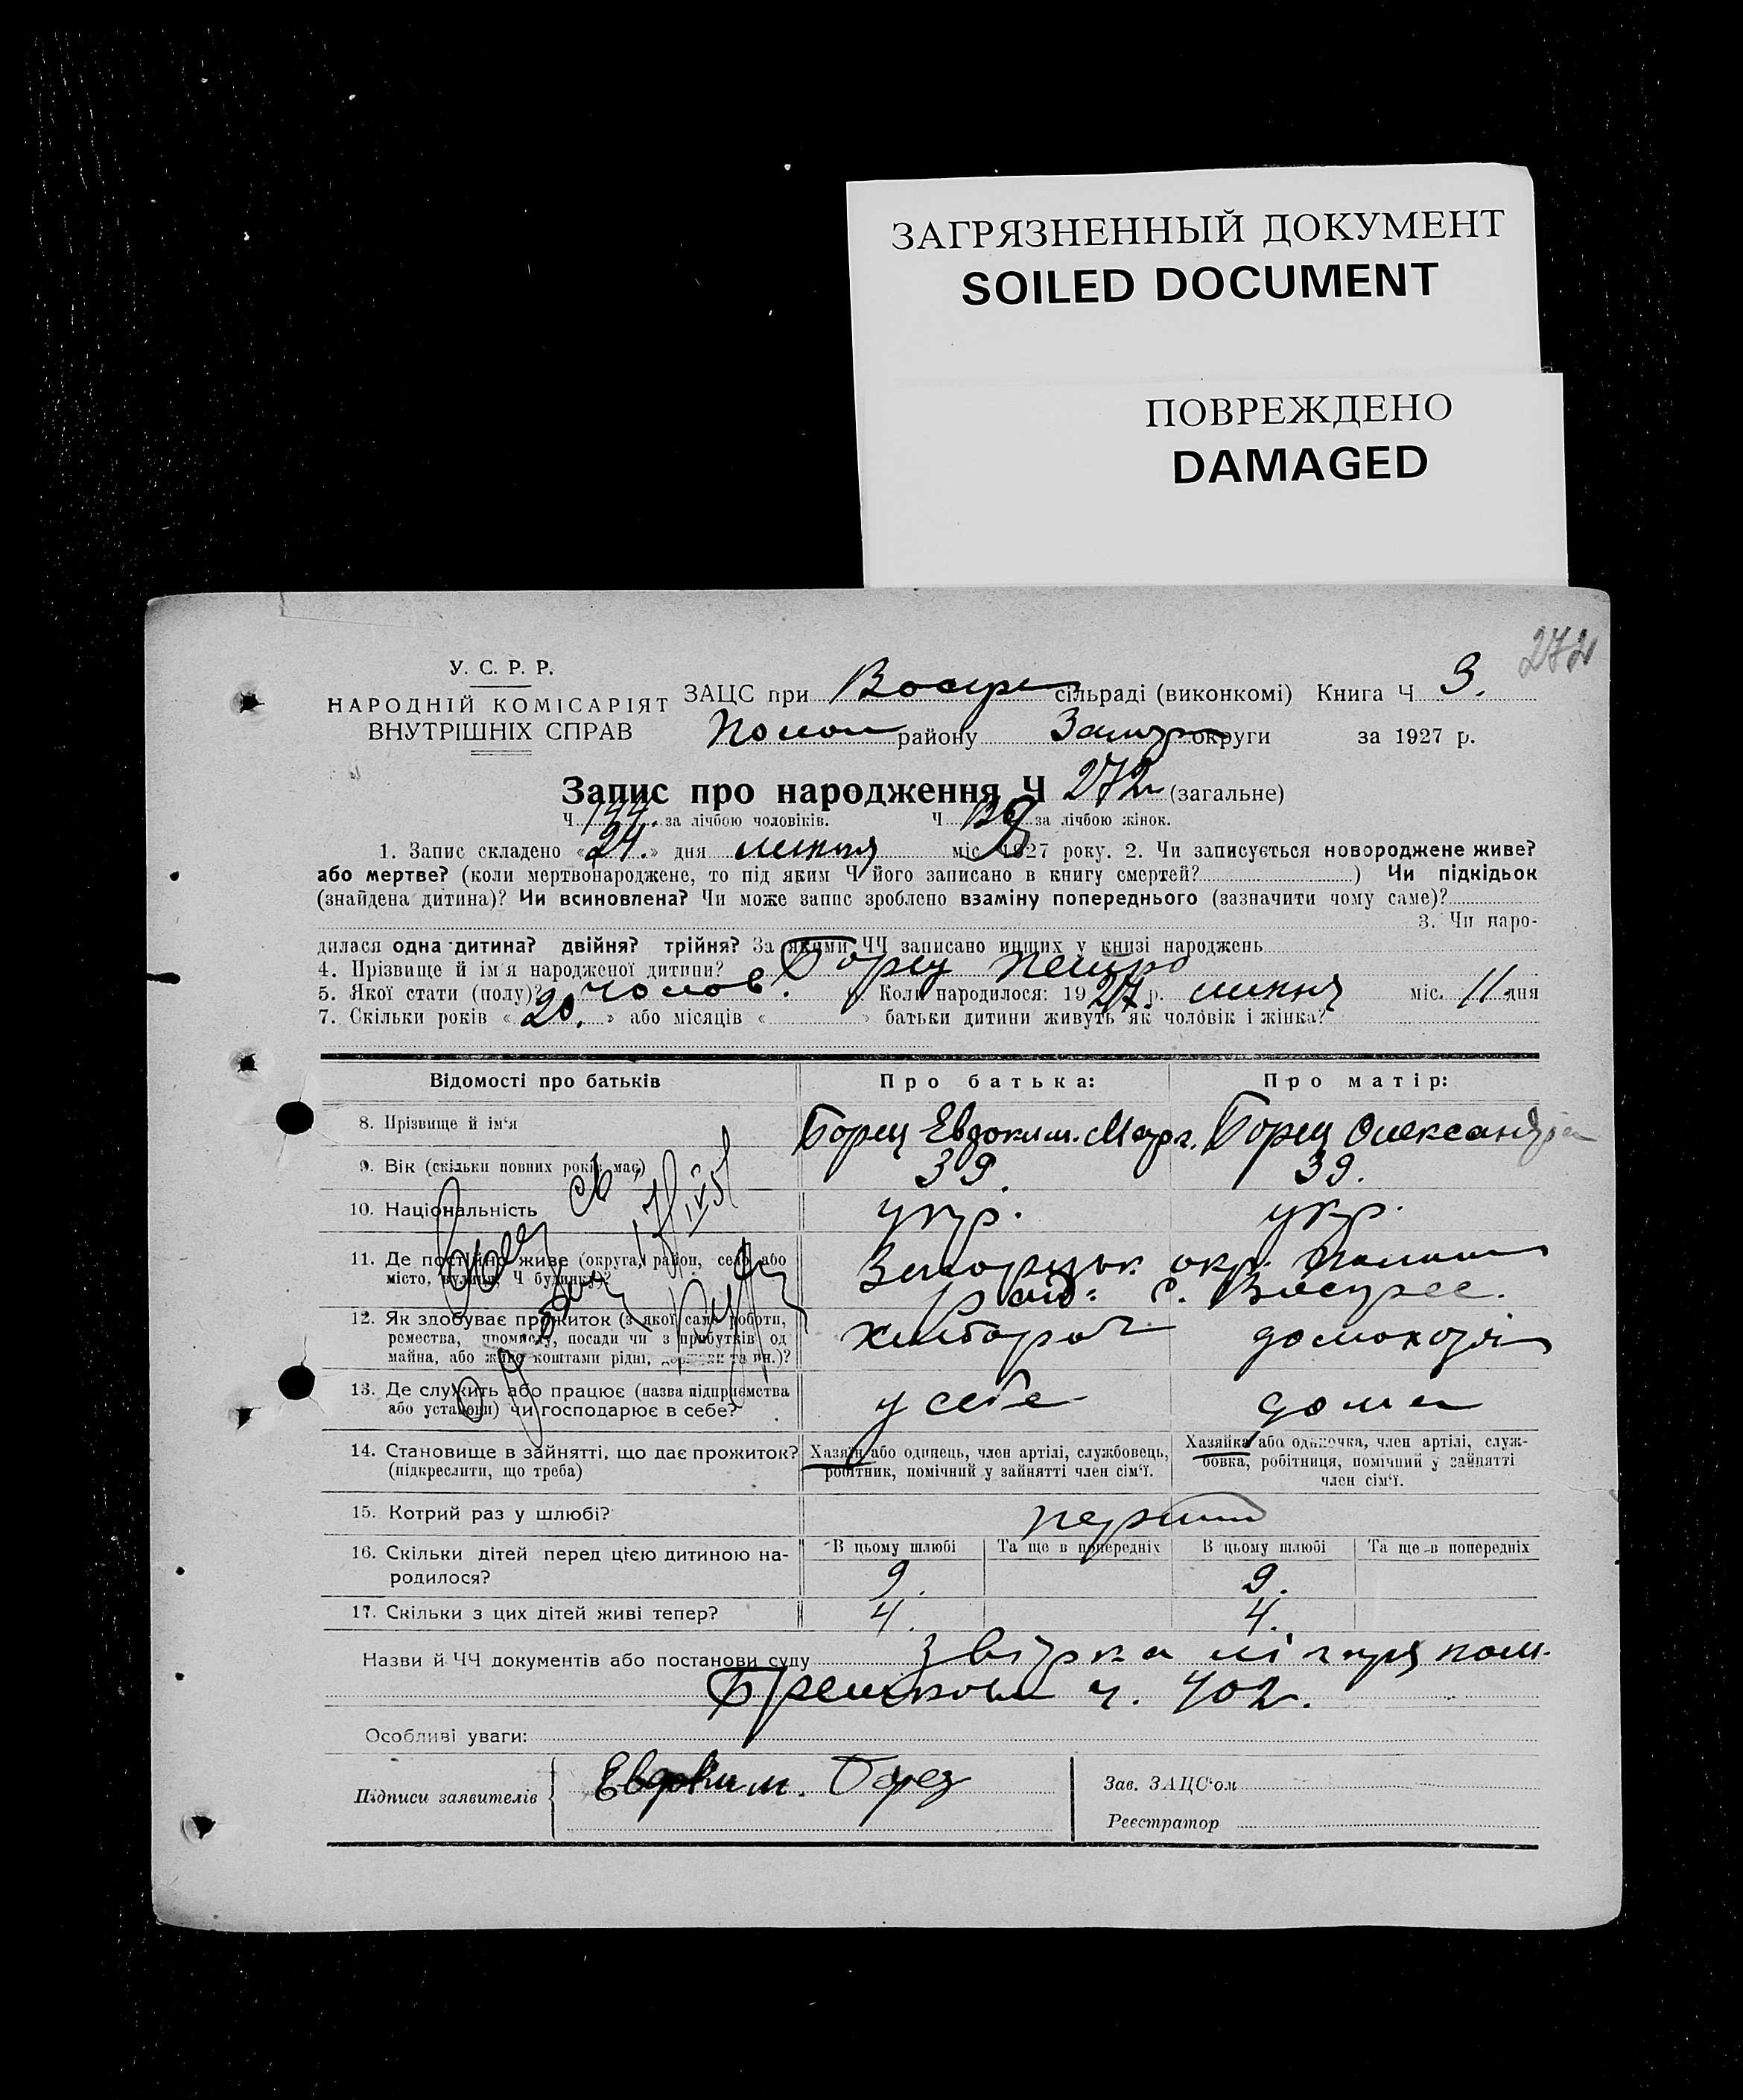 ЗАГРЯЗНЕННЫЙ ДОКУМЕНТ
SOILED DOCUMENT
ПОВРЕЖДЕНО
DAMAGED
272
У. С. Р. Р.
НАРОДНІЙ КОМІСАРІЯТ
ВНУТРІШНІХ СПРАВ
ЗАЦС при Воскре сільраді (виконкомі) Книга Ч 3.
Полог району Запор округи за 1927 р.
Запис про народження Ч 272 (загальне)
Ч 144. за лічбою чоловіків. Ч за лічбою жінок.
1. Запис складено «24.» дня липня міс 1927 року. 2. Чи записується новороджене живе?
або мертве? (коли мертвонароджене, то під яким Ч його записано в книгу смертей? ) Чи підкідьок
(знайдена дитина)? Чи всиновлена? Чи може запис зроблено взаміну попереднього (зазначити чому саме)?
3. Чи наро-
дилася одна дитина? двійня? трійня? За якими ЧЧ записано инших у книзі народжень
4. Прізвище й ім'я народженої дитини? Борец Петро
5. Якої стати (полу)? чолов. 6. Коли народилося: 1927 р. липня міс. 11 дня
7. Скільки років «20.» або місяців « » батьки дитини живуть як чоловік і жінка?
Відомості про батьків Про батька: Про матір:
8. Прізвище й ім'я Борец Евдоким. Марк. Борец Олександра
9. Вік (скільки повних років має) 39. 39.
10. Національність укр. укр.
11. Де постійно живе (округа, район, село або
місто, вулиця, Ч будинку)? Запорізьк. окр. Полог
рай. с. Воскрес.
12. Як здобуває прожиток (з якої саме роботи,
ремества, промислу, посади чи з прибутків од
майна, або живе коштами рідні, держави та ин.)? хлібороб домохазяй
13. Де служить або працює (назва підприємства
або установи) чи господарює в себе? у себе дома
14. Становище в зайнятті, що дає прожиток?
(підкреслити, що треба)
Хазяїн або одинець, член артілі, службовець,
робітник, помічний у зайнятті член сім'ї.
Хазяйка або одиночка, член артілі, служ-
бовка, робітниця, помічний у зайнятті
член сім'ї.
15. Котрий раз у шлюбі? перший
16. Скільки дітей перед цією дитиною на-
родилося?
В цьому шлюбі Та ще в попередніх В цьому шлюбі Та ще в попередніх
9. 9.
17. Скільки з цих дітей живі тепер? 4. 4.
Назви й ЧЧ документів або постанови суду
ч. 402.
Особливі уваги:
Підписи заявителів Евдоким. Борец
Зав. ЗАЦС'ом
Реєстратор